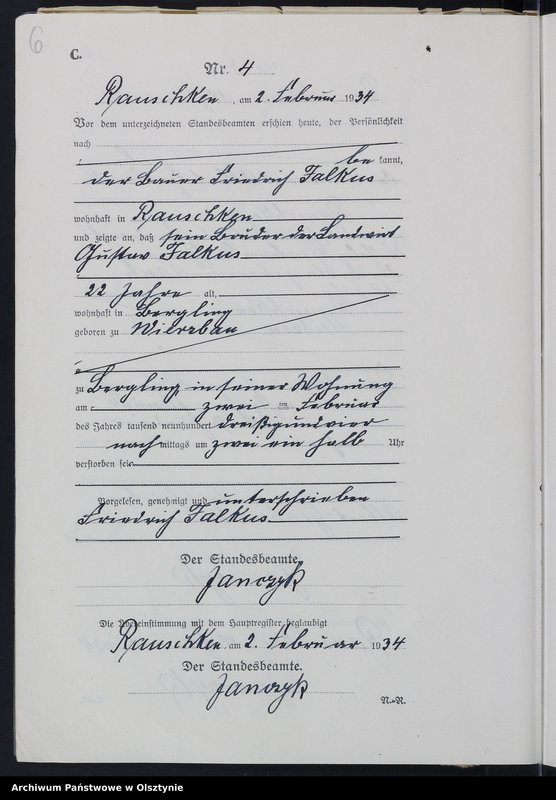 6
C.
Nr. 4
Rauschken, am 2. Februar 1934
Vor dem unterzeichneten Standesbeamten erschien heute, der Persönlichkeit
nach
be kannt,
der Bauer Friedrich Falkus
wohnhaft in Rauschken
und zeigte an, daß sein Bruder der Landwirt
Gustav Falkus
22 Jahre alt,
wohnhaft in Bergling
geboren zu Wierzbau
zu Bergling, in seiner Wohnung
am zwei ten Februar
des Jahres tausend neunhundert dreißigundvier
nach mittags um zwei ein halb Uhr
verstorben sei.
Vorgelesen, genehmigt und unterschrieben
Friedrich Falkus
Der Standesbeamte
Janczyk
Die Übereinstimmung mit dem Hauptregister beglaubigt
Rauschken, am 2. Februar 1934
Der Standesbeamte.
Janczyk
N.-R.
Archiwum Państwowe w Olsztynie